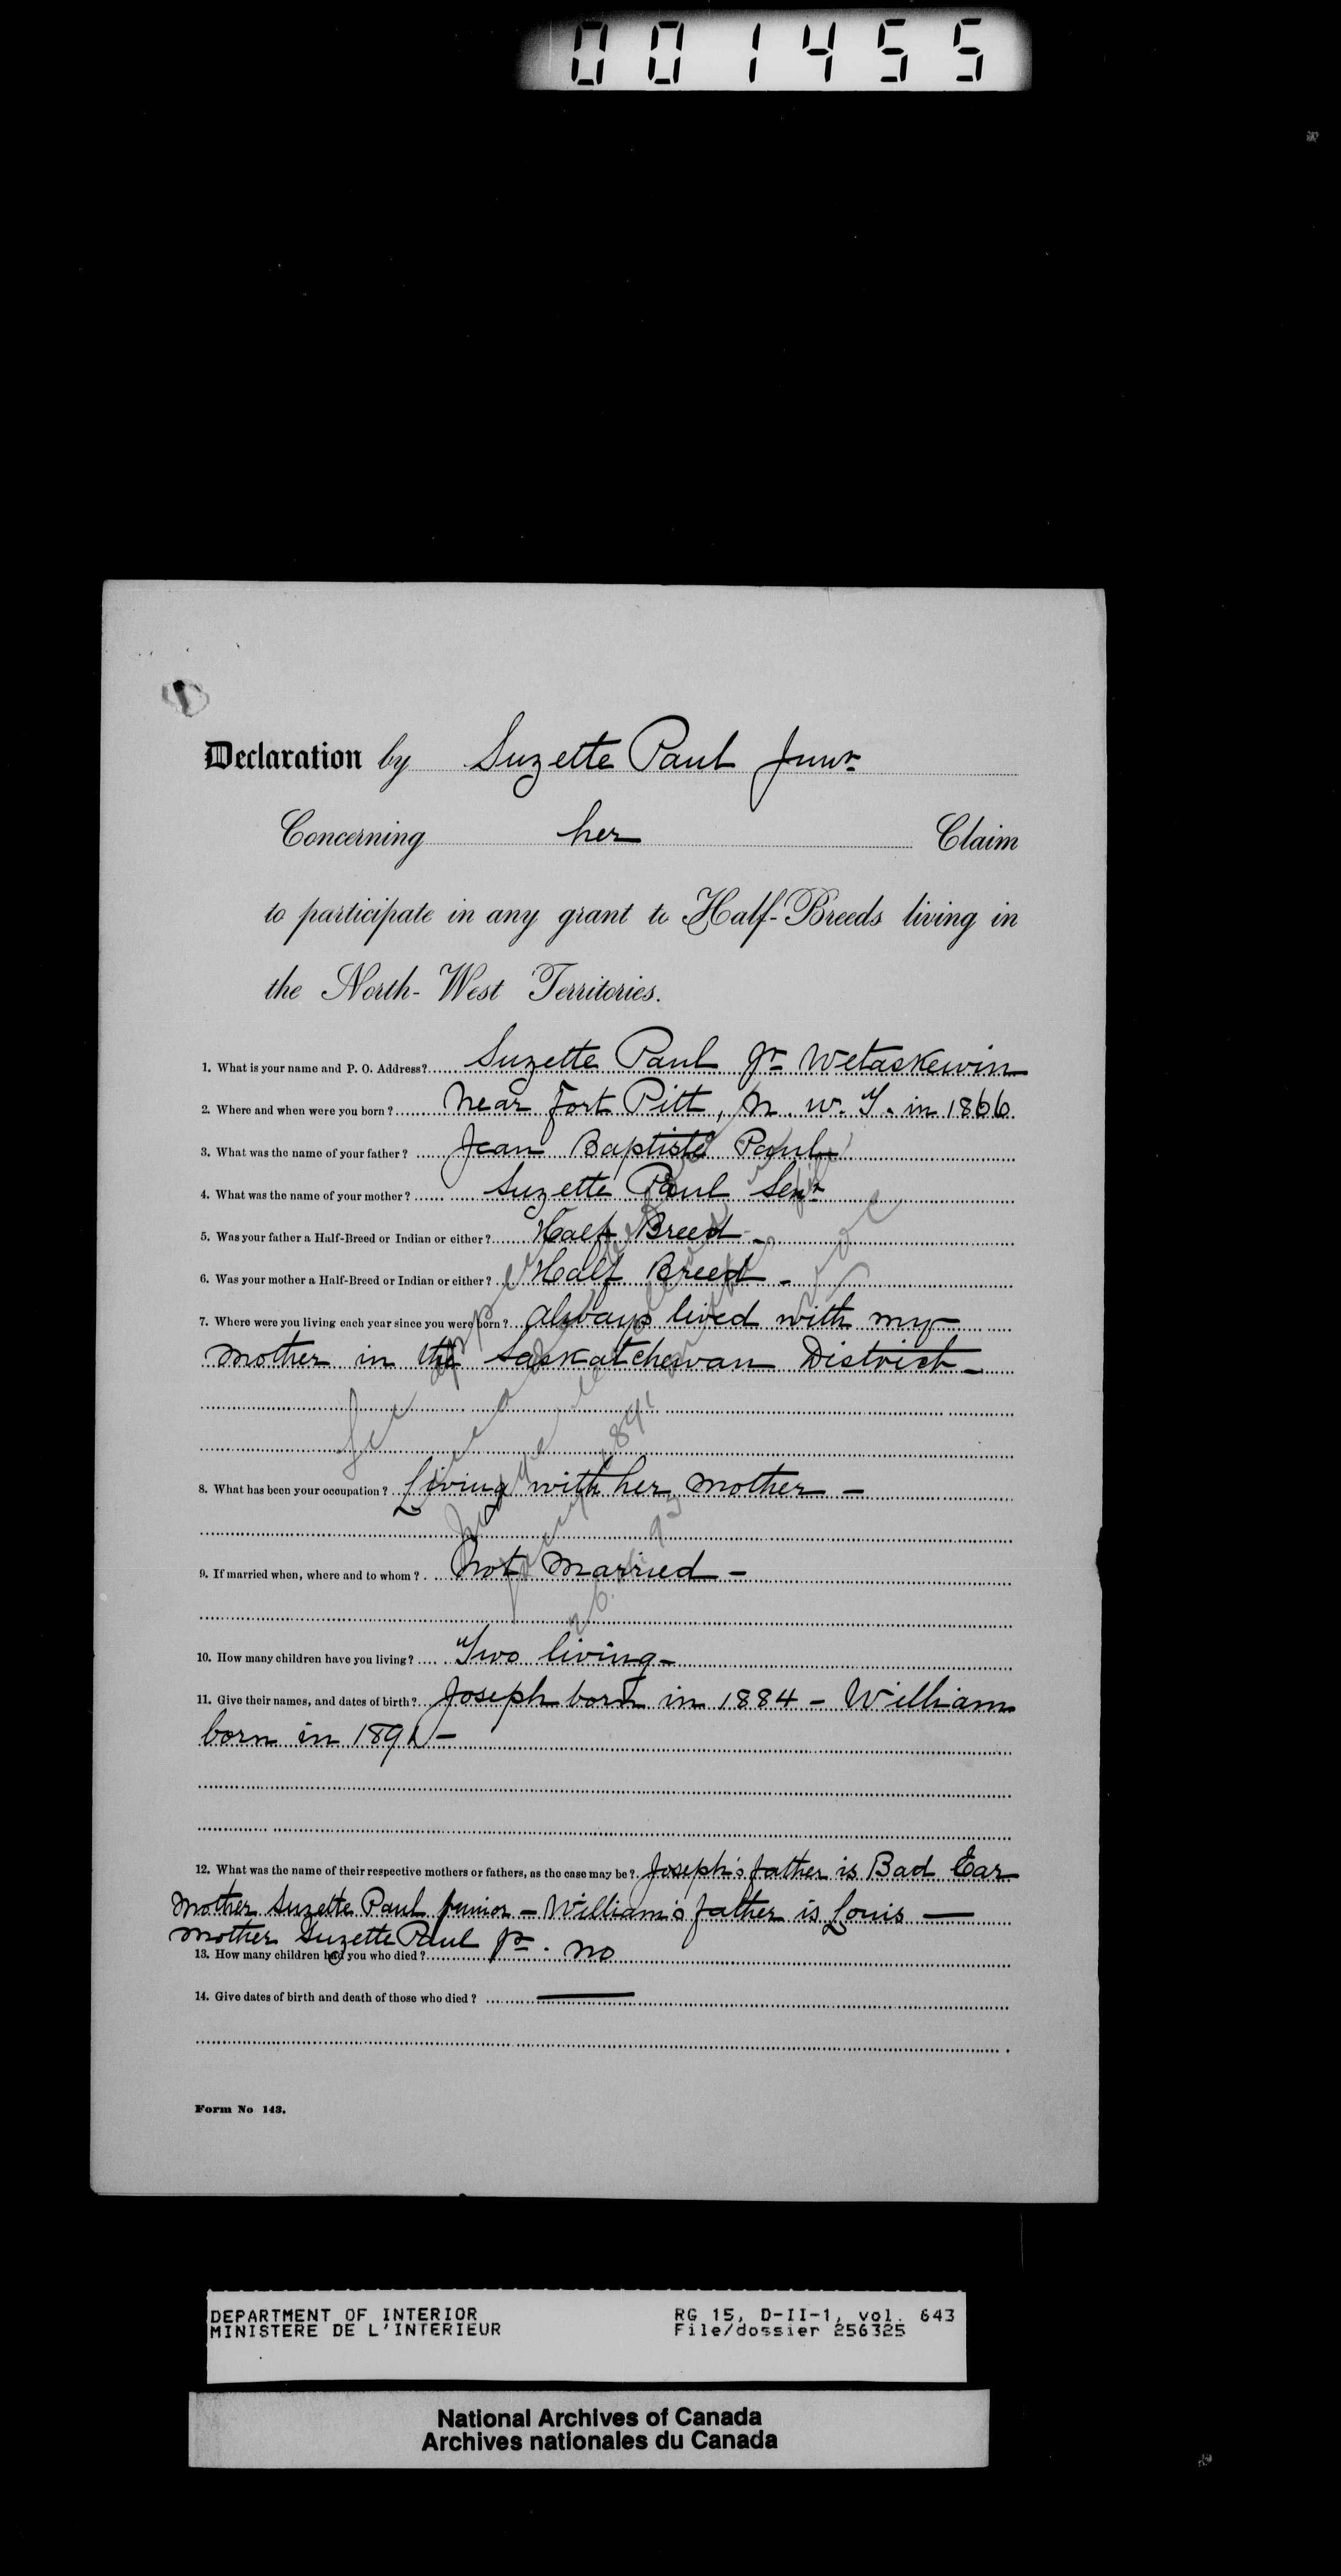 001455
Declaration by Suzette Paul Junr
Concerning her Claim
to participate in any grant to Half-Breeds living in
the North-West Territories.
1. What is your name and P. O. Address? Suzette Paul Jr Wetaskewin
2. Where and when were you born? Near Fort Pitt, N. W. T. in 1866
3. What was the name of your father? Jean Baptiste Paul
4. What was the name of your mother? Suzette Paul Senr
5. Was your father a Half-Breed or Indian or either? Half Breed -
6. Was your mother a Half-Breed or Indian or either? Half Breed -
7. Where were you living each year since you were born? always lived with my
mother in the Saskatchewan District -
8. What has been your occupation? Living with her mother -
9. If married when, where and to whom? Not married -
10. How many children have you living? Two living -
11. Give their names, and dates of birth? Joseph born in 1884 - William
born in 1891 -
12. What was the name of their respective mothers or fathers, as the case may be? Joseph's father is Bad Ear
Mother Suzette Paul junior - William's father is Louis -
Mother Suzette Paul Jr.
13. How many children had you who died? no
14. Give dates of birth and death of those who died? —
Form No 143.
DEPARTMENT OF INTERIOR RG 15, D-II-1, vol. 643
MINISTERE DE L'INTERIEUR File/dossier 256325
National Archives of Canada
Archives nationales du Canada